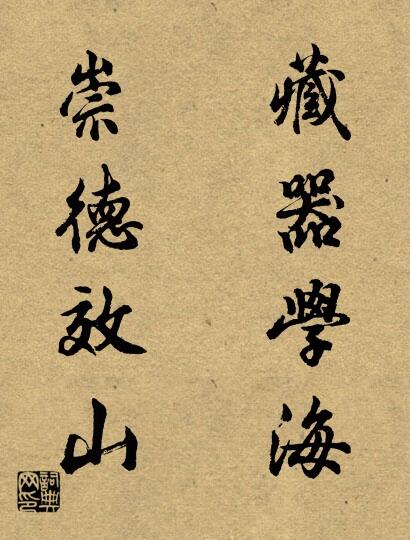 藏器學海
崇德效山
詞典网印